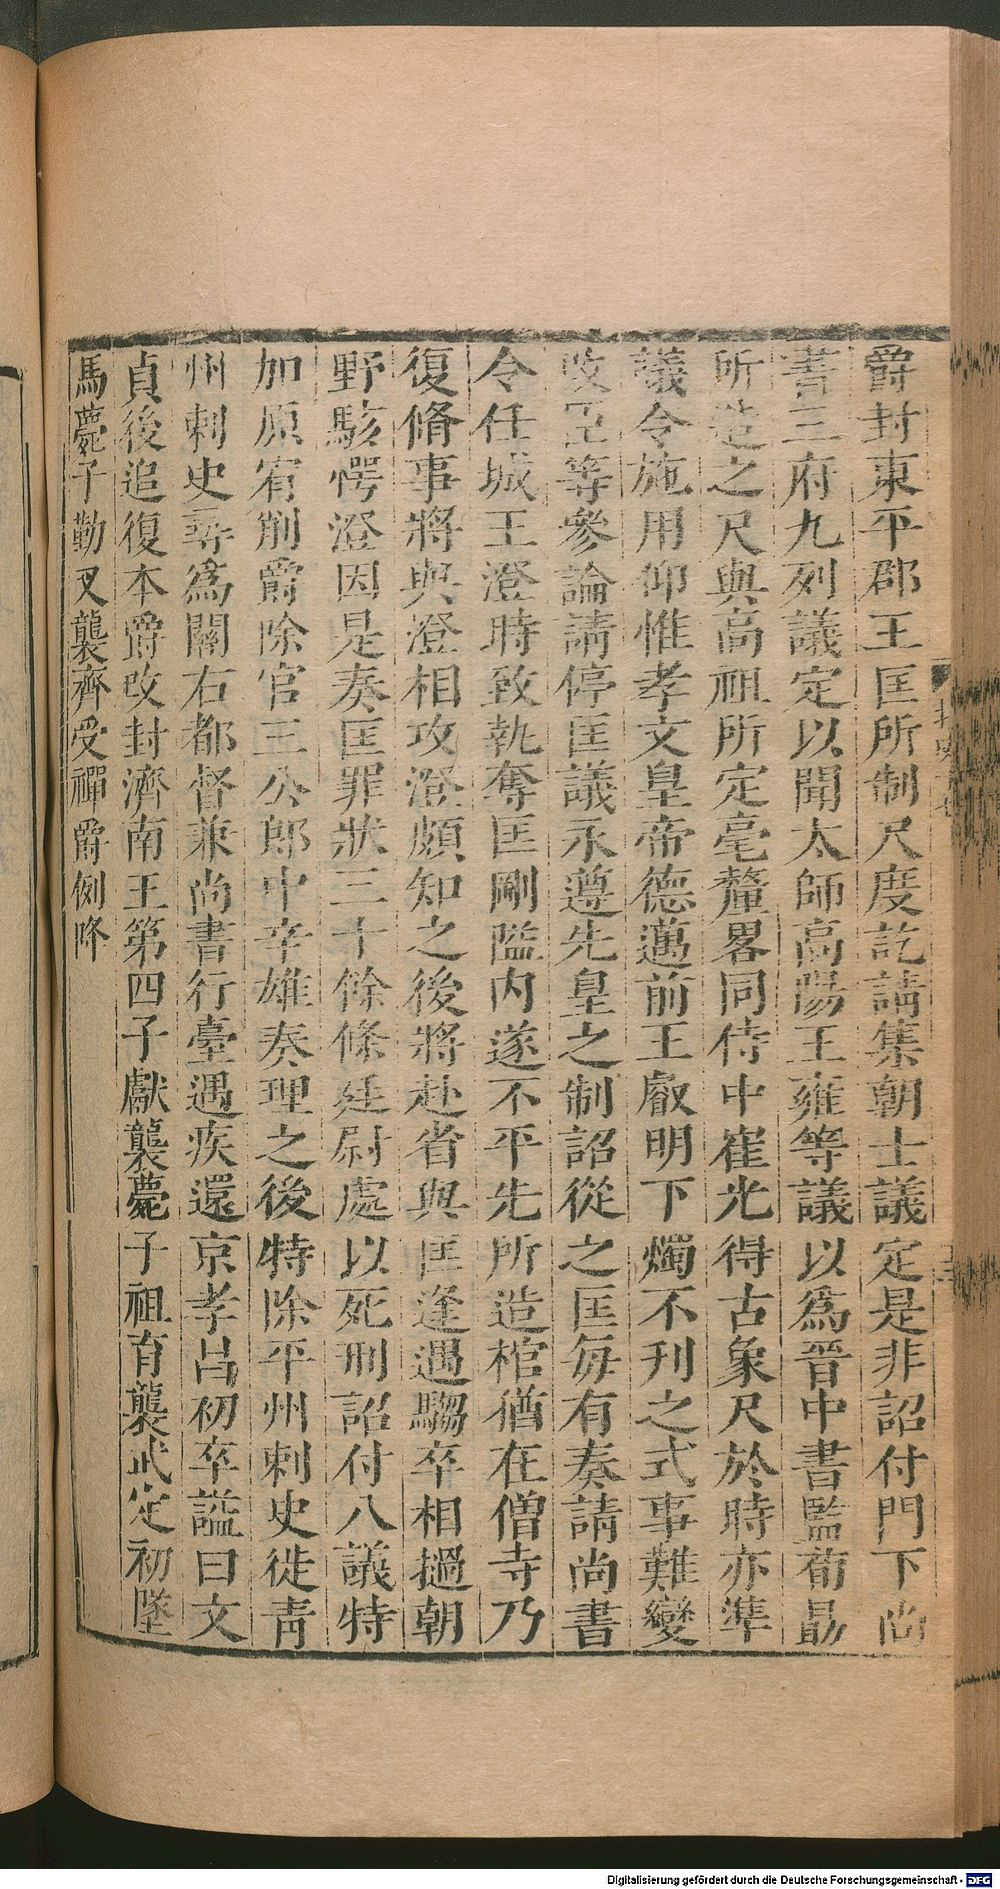 爵封東平郡王匡所制尺度訖請集朝士議定是非詔付門下尚
書三府九列議定以聞太師高陽王雍等議以爲晉中書監荀勗
所造之尺與高祖所定毫釐畧同侍中崔光得古象尺於時亦準
議令施用仰惟孝文皇帝德邁前王叡明下燭不刊之式事難變
改臣等參論請停匡議永遵先皇之制詔從之匡每有奏請尚書
令任城王澄時致執奪匡剛隘内遂不平先所造棺猶在僧寺乃
復脩事將與澄相攻澄頗知之後將赴省與匡逢遇騶卒相撾朝
野駭愕澄因是奏匡罪狀三十餘條廷尉處以死刑詔付八議特
加原宥削爵除官三公郎中辛雄奏理之後特除平州刺史徙青
州刺史尋爲關右都督兼尚書行臺遇疾還京孝昌初卒謚曰文
貞後追復本爵改封濟南王第四子獻襲薨子祖育襲武定初墜
馬薨子勒叉襲齊受禪爵例降
Digitalisierung gefördert durch die Deutsche Forschungsgemeinschaft - DFG